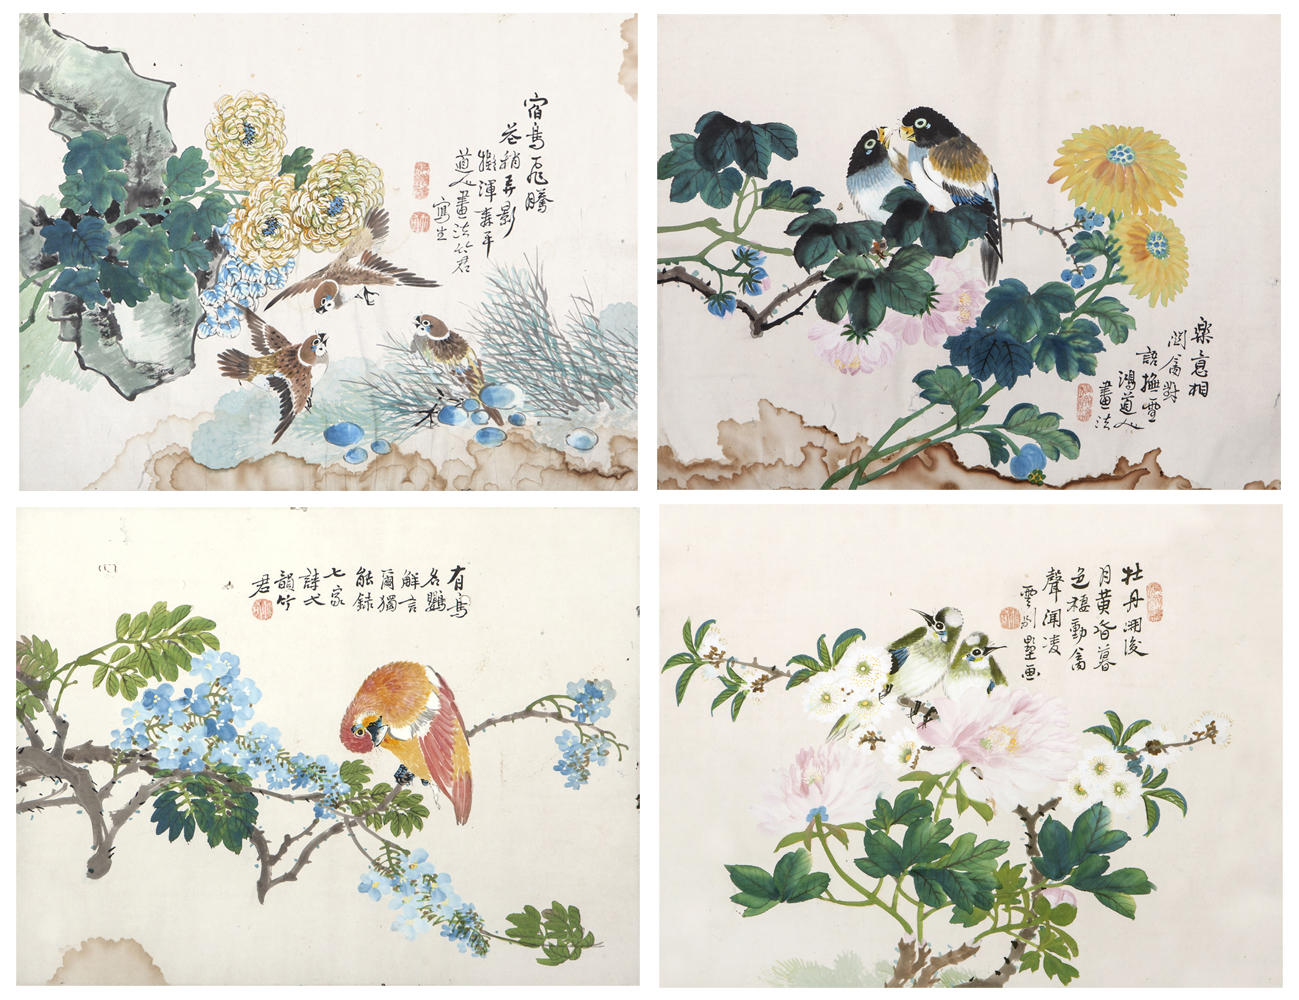 宿鳥飛騰
花稍弄影
擬渾壽平
道人畫法竹君
寫生
樂意相
関禽對
語撫雪
鴻道人
畫法
有鳥
名鸚
解言
爾獨
能録
七家
詩以
韻竹
君
牡丹開後
月黄昏暮
色棲動禽
聲聞凌
雲別墅画